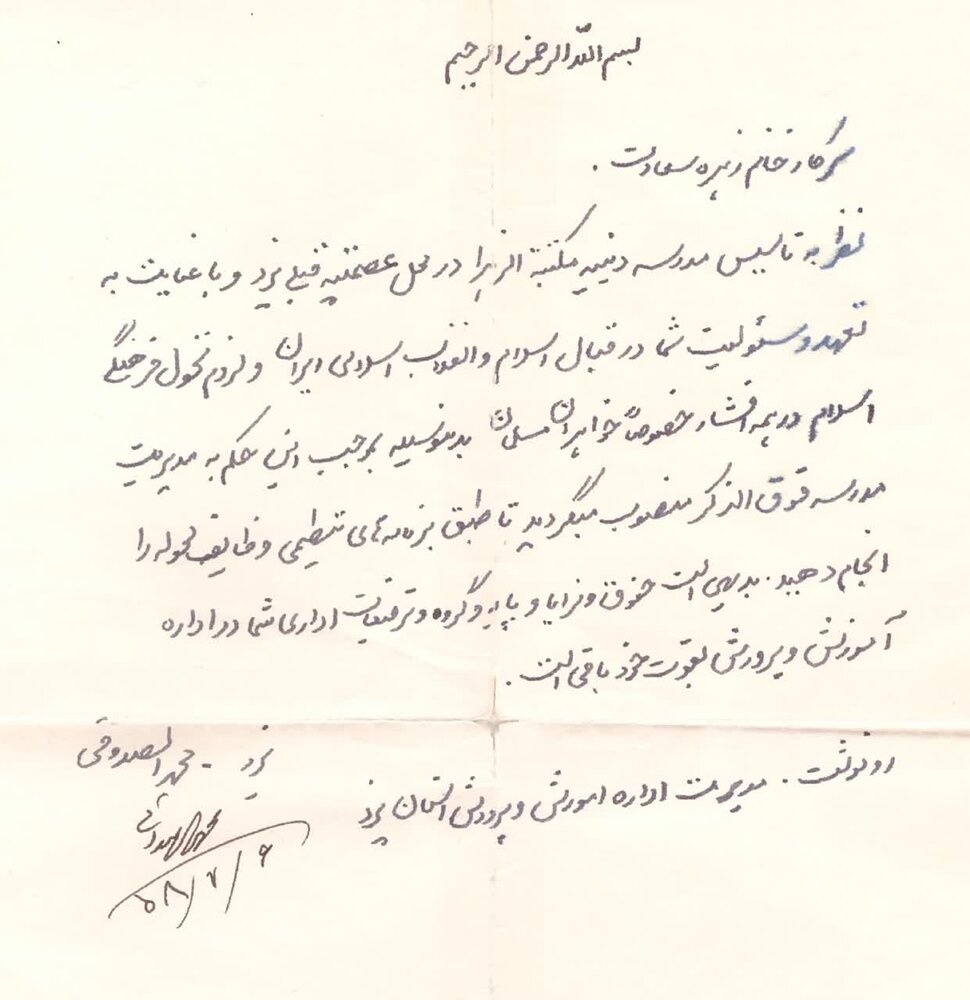 بسم الله الرحمن الرحیم
سرکار خانم زهره سعادت .
نظر به تاسیس مدرسه دینیه مکتبة الزهرا در محل عصمتیه قبلی یزد و با عنایت به
تعهد و مسئولیت شما در قبال اسلام و انقلاب اسلامی ایران و لزوم تحول فرهنگی
اسلام در همه اقشار خصوصاً خواهران مسلمان بدینوسیله بموجب این حکم به مدیریت
مدرسه فوق الذکر منصوب میگردید تا طبق برنامه‌های تنظیمی وظایف محوله را
انجام دهید . بدیهی است حقوق و مزایا و پایه و گروه و ترفیعات اداری شما در اداره
آموزش و پرورش بقوت خود باقی است .
یزد - محمد الصدوقی
رونوشت . مدیریت اداره اموزش و پرورش استان یزد
۵۸/۷/۶